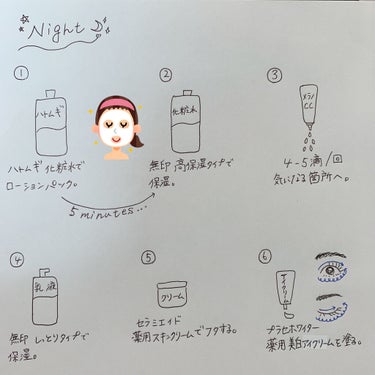 Night
①
ハトムギ
ハトムギ化粧水で
ローションパック。
5 minutes...
②
化粧水
無印 高保湿タイプで
保湿。
③
メラノ
CC
4-5滴/回
気になる箇所へ。
④
乳液
無印 しっとりタイプで
保湿。
⑤
クリーム
セラミエイド
薬用スキンクリームでフタする。
⑥
アイクリーム
プラセホワイター
薬用美白アイクリームを塗る。